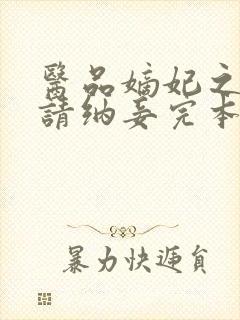 醫品嫡妃之
請納妾完本
暴力快遞員